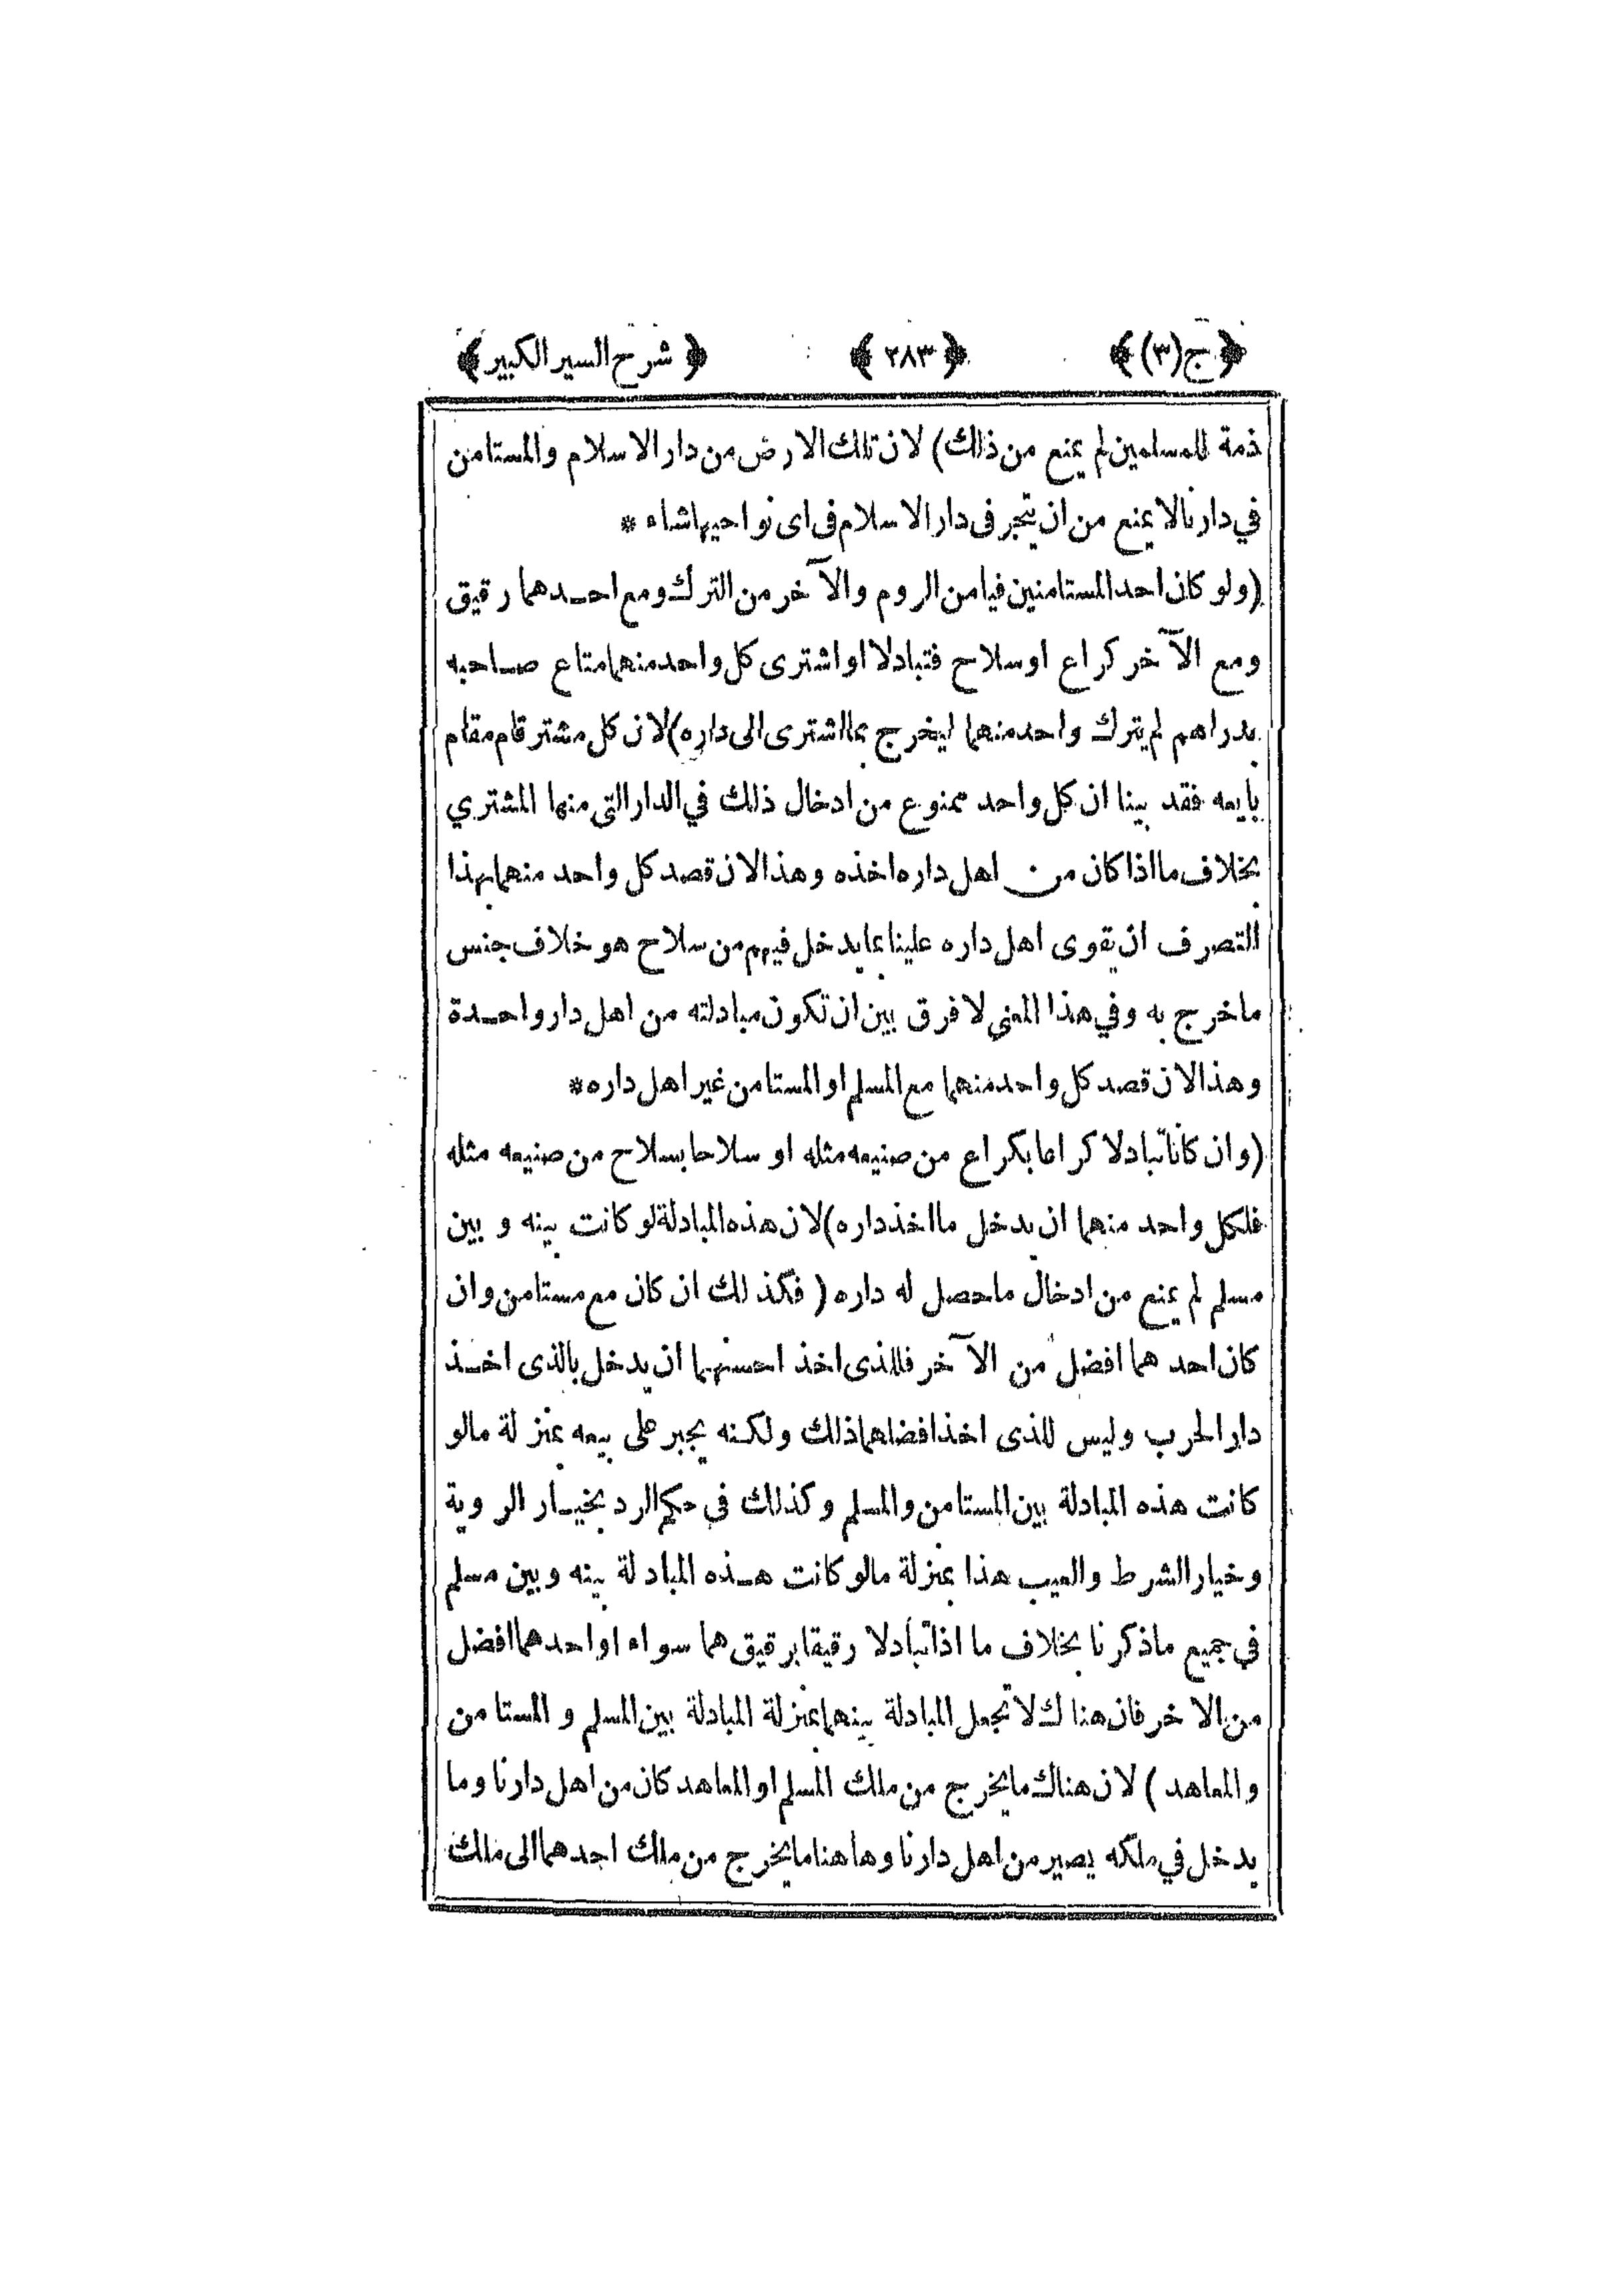 ﴿ج(٣)﴾ ﴿٢٨٣﴾ ﴿شرح السير الكبير﴾
ذمة للمسلمين لم يمنع من ذلك) لان تلك الارض من دار الاسلام والمستامن
في دارنا لا يمنع من ان يتجر فى دار الاسلام فى اى نواحيها شاء *
(ولو كان احد المستامنين فينا من الروم والآخر من الترك ومع احدهما رقيق
ومع الآخر كراع او سلاح فتبادلا او اشترى كل واحد منهما متاع صاحبه
بدراهم لم يترك واحد منهما ليخرج بما اشترى الى داره) لان كل مشتر قام مقام
بايعه فقد بينا ان كل واحد ممنوع من ادخال ذلك في الدار التى منها المشتري
بخلاف ما اذا كان من اهل داره اخذه وهذا لان قصد كل واحد منهما بهذا
التصرف ان يقوى اهل داره علينا بما يدخل فيهم من سلاح هو خلاف جنس
ما خرج به وفي هذا المعنى لا فرق بين ان تكون مبادلته من اهل دار واحدة
وهذا لان قصد كل واحد منهما مع المسلم او المستامن غير اهل داره *
(وان كانا تبادلا كراعا بكراع من صنيعه مثله او سلاحا بسلاح من صنيعه مثله
فلكل واحد منهما ان يدخل ما اخذ داره) لان هذه المبادلة لو كانت بينه و بين
مسلم لم يمنع من ادخال ما حصل له داره ( فكذلك ان كان مع مستامن وان
كان احدهما افضل من الآخر فللذى اخذ احسنهما ان يدخل بالذى اخذ
دار الحرب وليس للذى اخذ افضلهما ذلك ولكنه يجبر على بيعه بمنزلة مالو
كانت هذه المبادلة بين المستامن والمسلم وكذلك في حكم الرد بخيار الروية
وخيار الشرط والعيب هذا بمنزلة مالو كانت هذه المبادلة بينه وبين مسلم
في جميع ماذكرنا بخلاف ما اذا تبادلا رقيقا برقيق هما سواء او احدهما افضل
من الاخر فان هناك لا تجعل المبادلة بينهما بمنزلة المبادلة بين المسلم و المستامن
والمعاهد ) لان هناك ما يخرج من ملك المسلم او المعاهد كان من اهل دارنا وما
يدخل في ملكه يصير من اهل دارنا وهاهنا ما يخرج من ملك احدهما الى ملك